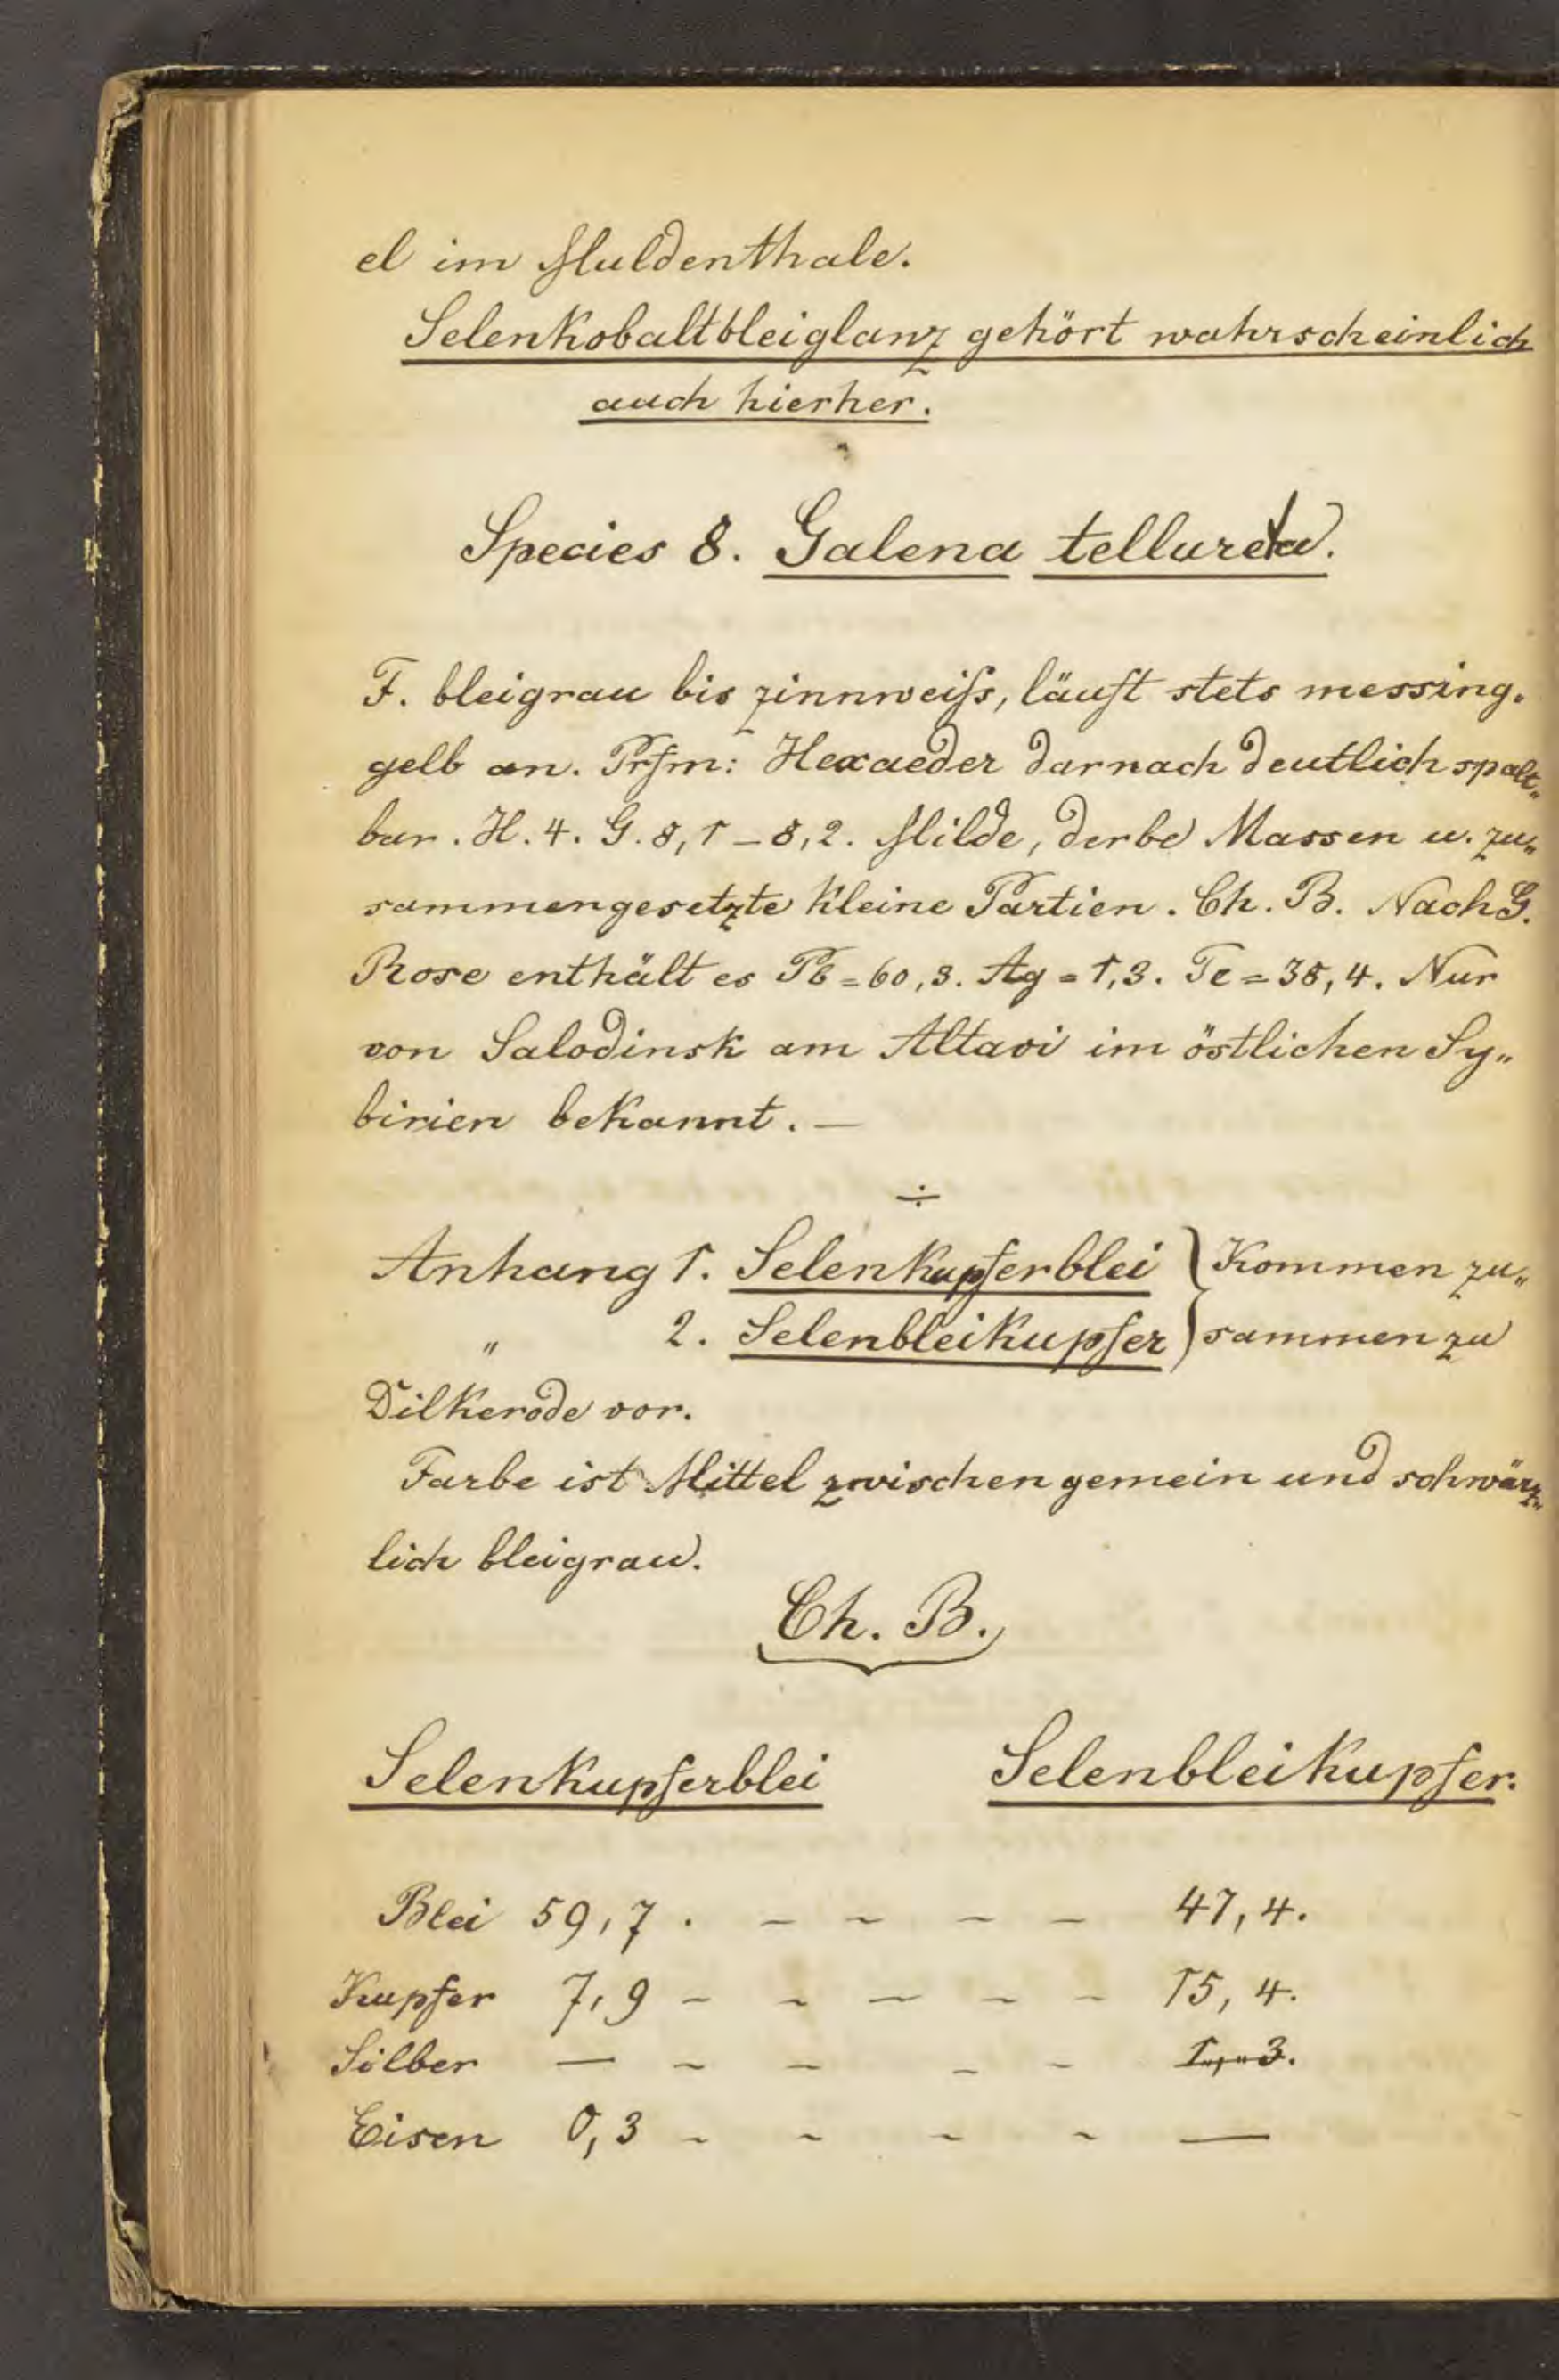 el im Muldenthale.
Selenkobaltbleiglanz gehört wahrscheinlich
auch hierher.
Species 8. Galena tellureta.
F. bleigrau bis zinnweiſs, läuft stets messing„
gelb an. Prfm: Hexaeder darnach deutlich spalt„
bar. H. 4. G. 8,1 – 8,2. Milde, derbe Massen u. zu„
sammengesetzte kleine Partien. Ch. B. Nach G.
Rose enthält es Pb = 60,3. Ag = 1,3. Te = 38,4. Nur
von Salodinsk am Altaoi im östlichen Sy„
birien bekannt. —
÷
Anhang 1. Selenkupferblei } Kommen zu„
„ 2. Selenbleikupfer } sammen zu
Dilkerode vor.
Farbe ist Mittel zwischen gemein und schwärz„
lich bleigrau.
Ch. B.
Selenkupferblei Selenbleikupfer.
Blei 59,7 . – – – – 47,4.
Kupfer 7,9 – – – – – 15,4.
Silber — – – – – 1„,„3.
Eisen 0,3 – – – – —